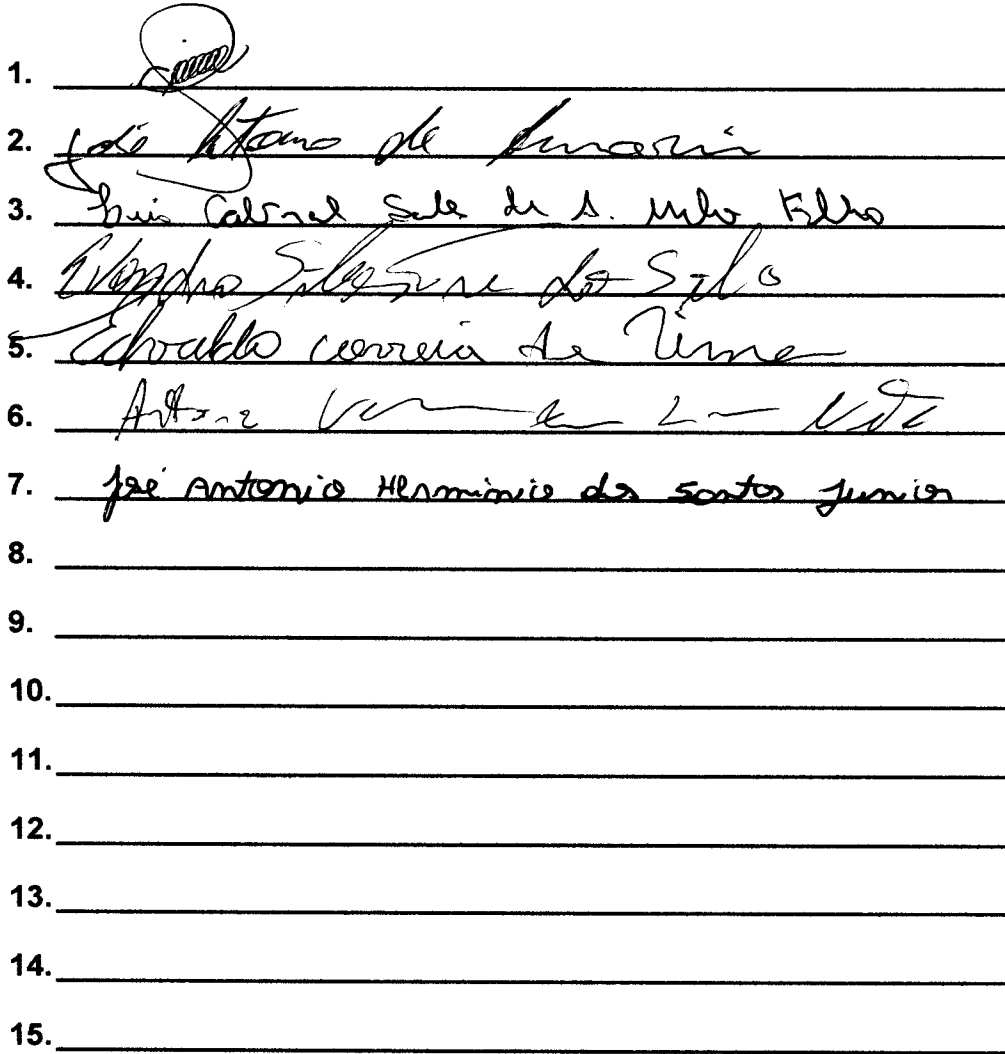 1.
2. José de
3. Luis Cabral Sales de A. Melo Filho
4. Evandro Silvestre da Silva
5. Edvaldo correia de Lima
6. Antonio Neto
7. José Antonio Herminio dos Santos Junior
8.
9.
10.
11.
12.
13.
14.
15.